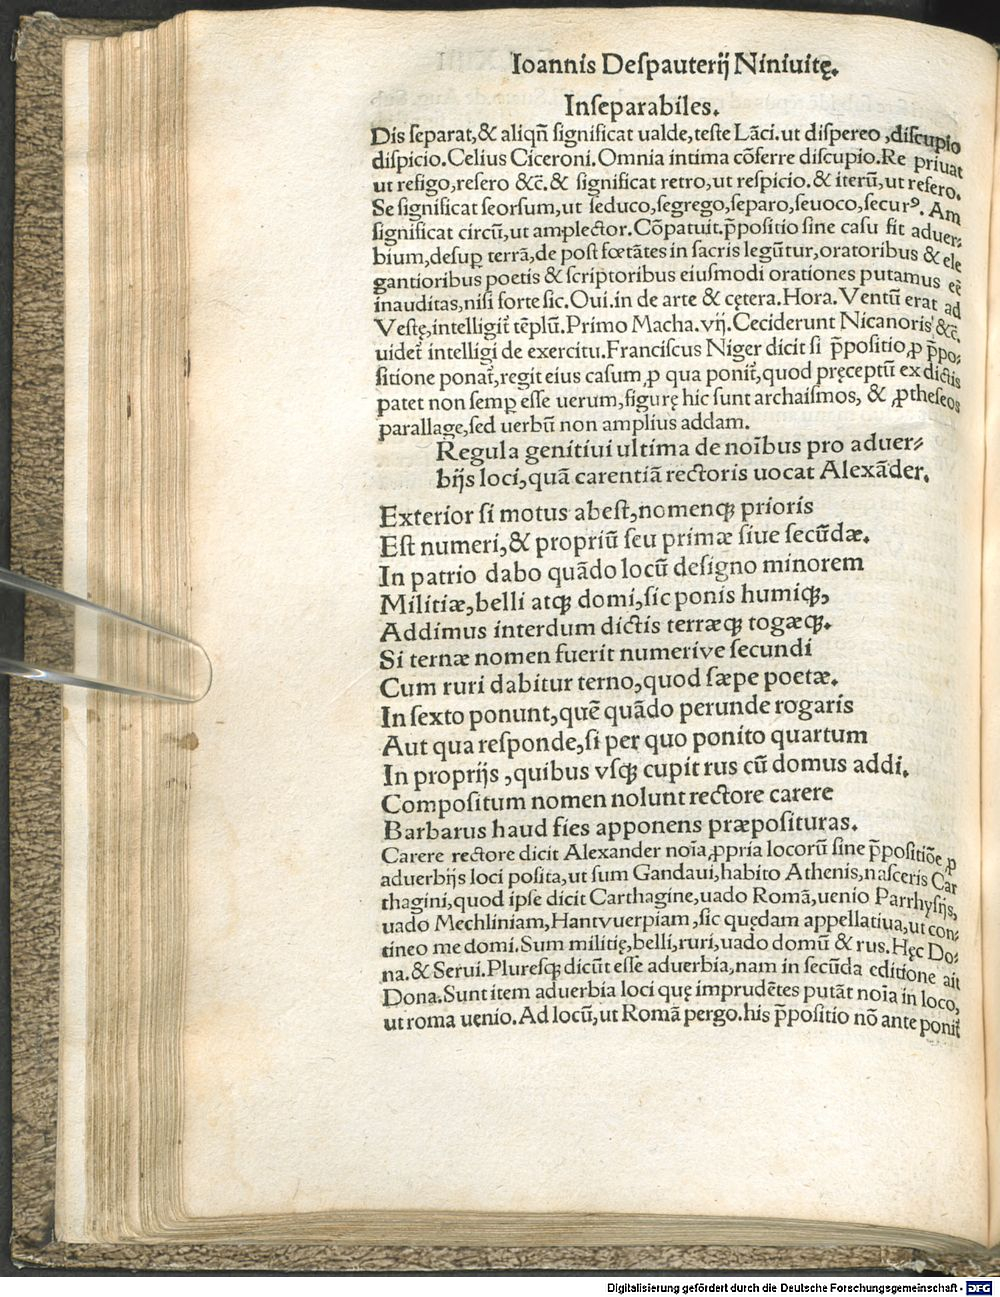 Ioannis Deſpauterij Niniuitę.
Inſeparabiles.
Dis ſeparat,& aliqñ ſignificat ualde,teſte Lãci.ut diſpereo ,diſcupio
diſpicio.Celius Ciceroni.Omnia intima cõferre diſcupio.Re priuat
ut refigo,reſero &c̃.& ſignificat retro,ut reſpicio.& iterũ,ut refero.
Se ſignificat ſeorſum,ut ſeduco,ſegrego,ſeparo,ſeuoco,ſecurꝰ. Am
ſignificat circũ,ut amplector.Cõpatuit.p̃poſitio ſine caſu fit aduer⸗
bium,deſuꝑ terrã,de poſt fœtãtes in ſacris legũtur,oratoribus & ele
gantioribus poetis & ſcriptoribus eiuſmodi orationes putamus eẽ
inauditas,niſi forte ſic.Oui.in de arte & cętera.Hora. Ventũ erat ad
Veſtę,intelligit̃ tẽplũ.Primo Macha.vij.Ceciderunt Nicanoris &c̃.
uidet̃ intelligi de exercitu.Franciſcus Niger dicit ſi p̃poſitio,ꝓ p̃po⸗
ſitione ponat̃,regit eius caſum,ꝓ qua ponit̃,quod pręceptũ ex dictis
patet non ſemꝑ eſſe uerum,figurę hic ſunt archaiſmos, & ꝓtheſeos
parallage,ſed uerbũ non amplius addam.
Regula genitiui ultima de noĩbus pro aduer⸗
bijs loci,quã carentiã rectoris uocat Alexãder.
Exterior ſi motus abeſt,nomenqꝫ prioris
Eſt numeri,& propriũ ſeu primæ ſiue ſecũdæ.
In patrio dabo quãdo locũ deſigno minorem
Militiæ,belli atqꝫ domi,ſic ponis humiqꝫ,
Addimus interdum dictis terræqꝫ togæqꝫ.
Si ternæ nomen fuerit numerive ſecundi
Cum ruri dabitur terno,quod ſæpe poetæ.
In ſexto ponunt,quẽ quãdo perunde rogaris
Aut qua reſponde,ſi per quo ponito quartum
In proprijs ,quibus vſqꝫ cupit rus cũ domus addi.
Compoſitum nomen nolunt rectore carere
Barbarus haud fies apponens præpoſituras.
Carere rectore dicit Alexander noĩa,ꝓpria locorũ ſine p̃poſitiõe ꝓ
aduerbijs loci poſita,ut ſum Gandaui,habito Athenis,naſceris Car
thagini,quod ipſe dicit Carthagine,uado Romã,uenio Parrhyſijs,
uado Mechliniam,Hantvuerpiam,ſic quędam appellatiua,ut con⸗
tineo me domi.Sum militię,belli,ruri,uado domũ & rus.Hęc Do⸗
na.& Serui.Pluresqꝫ dicũt eſſe aduerbia,nam in ſecũda editione ait
Dona.Sunt item aduerbia loci quę imprudẽtes putãt noĩa in loco,
ut roma uenio.Ad locũ,ut Romã pergo.his p̃poſitio nõ ante ponit̃
Digitalisierung gefördert durch die Deutsche Forschungsgemeinschaft - DFG